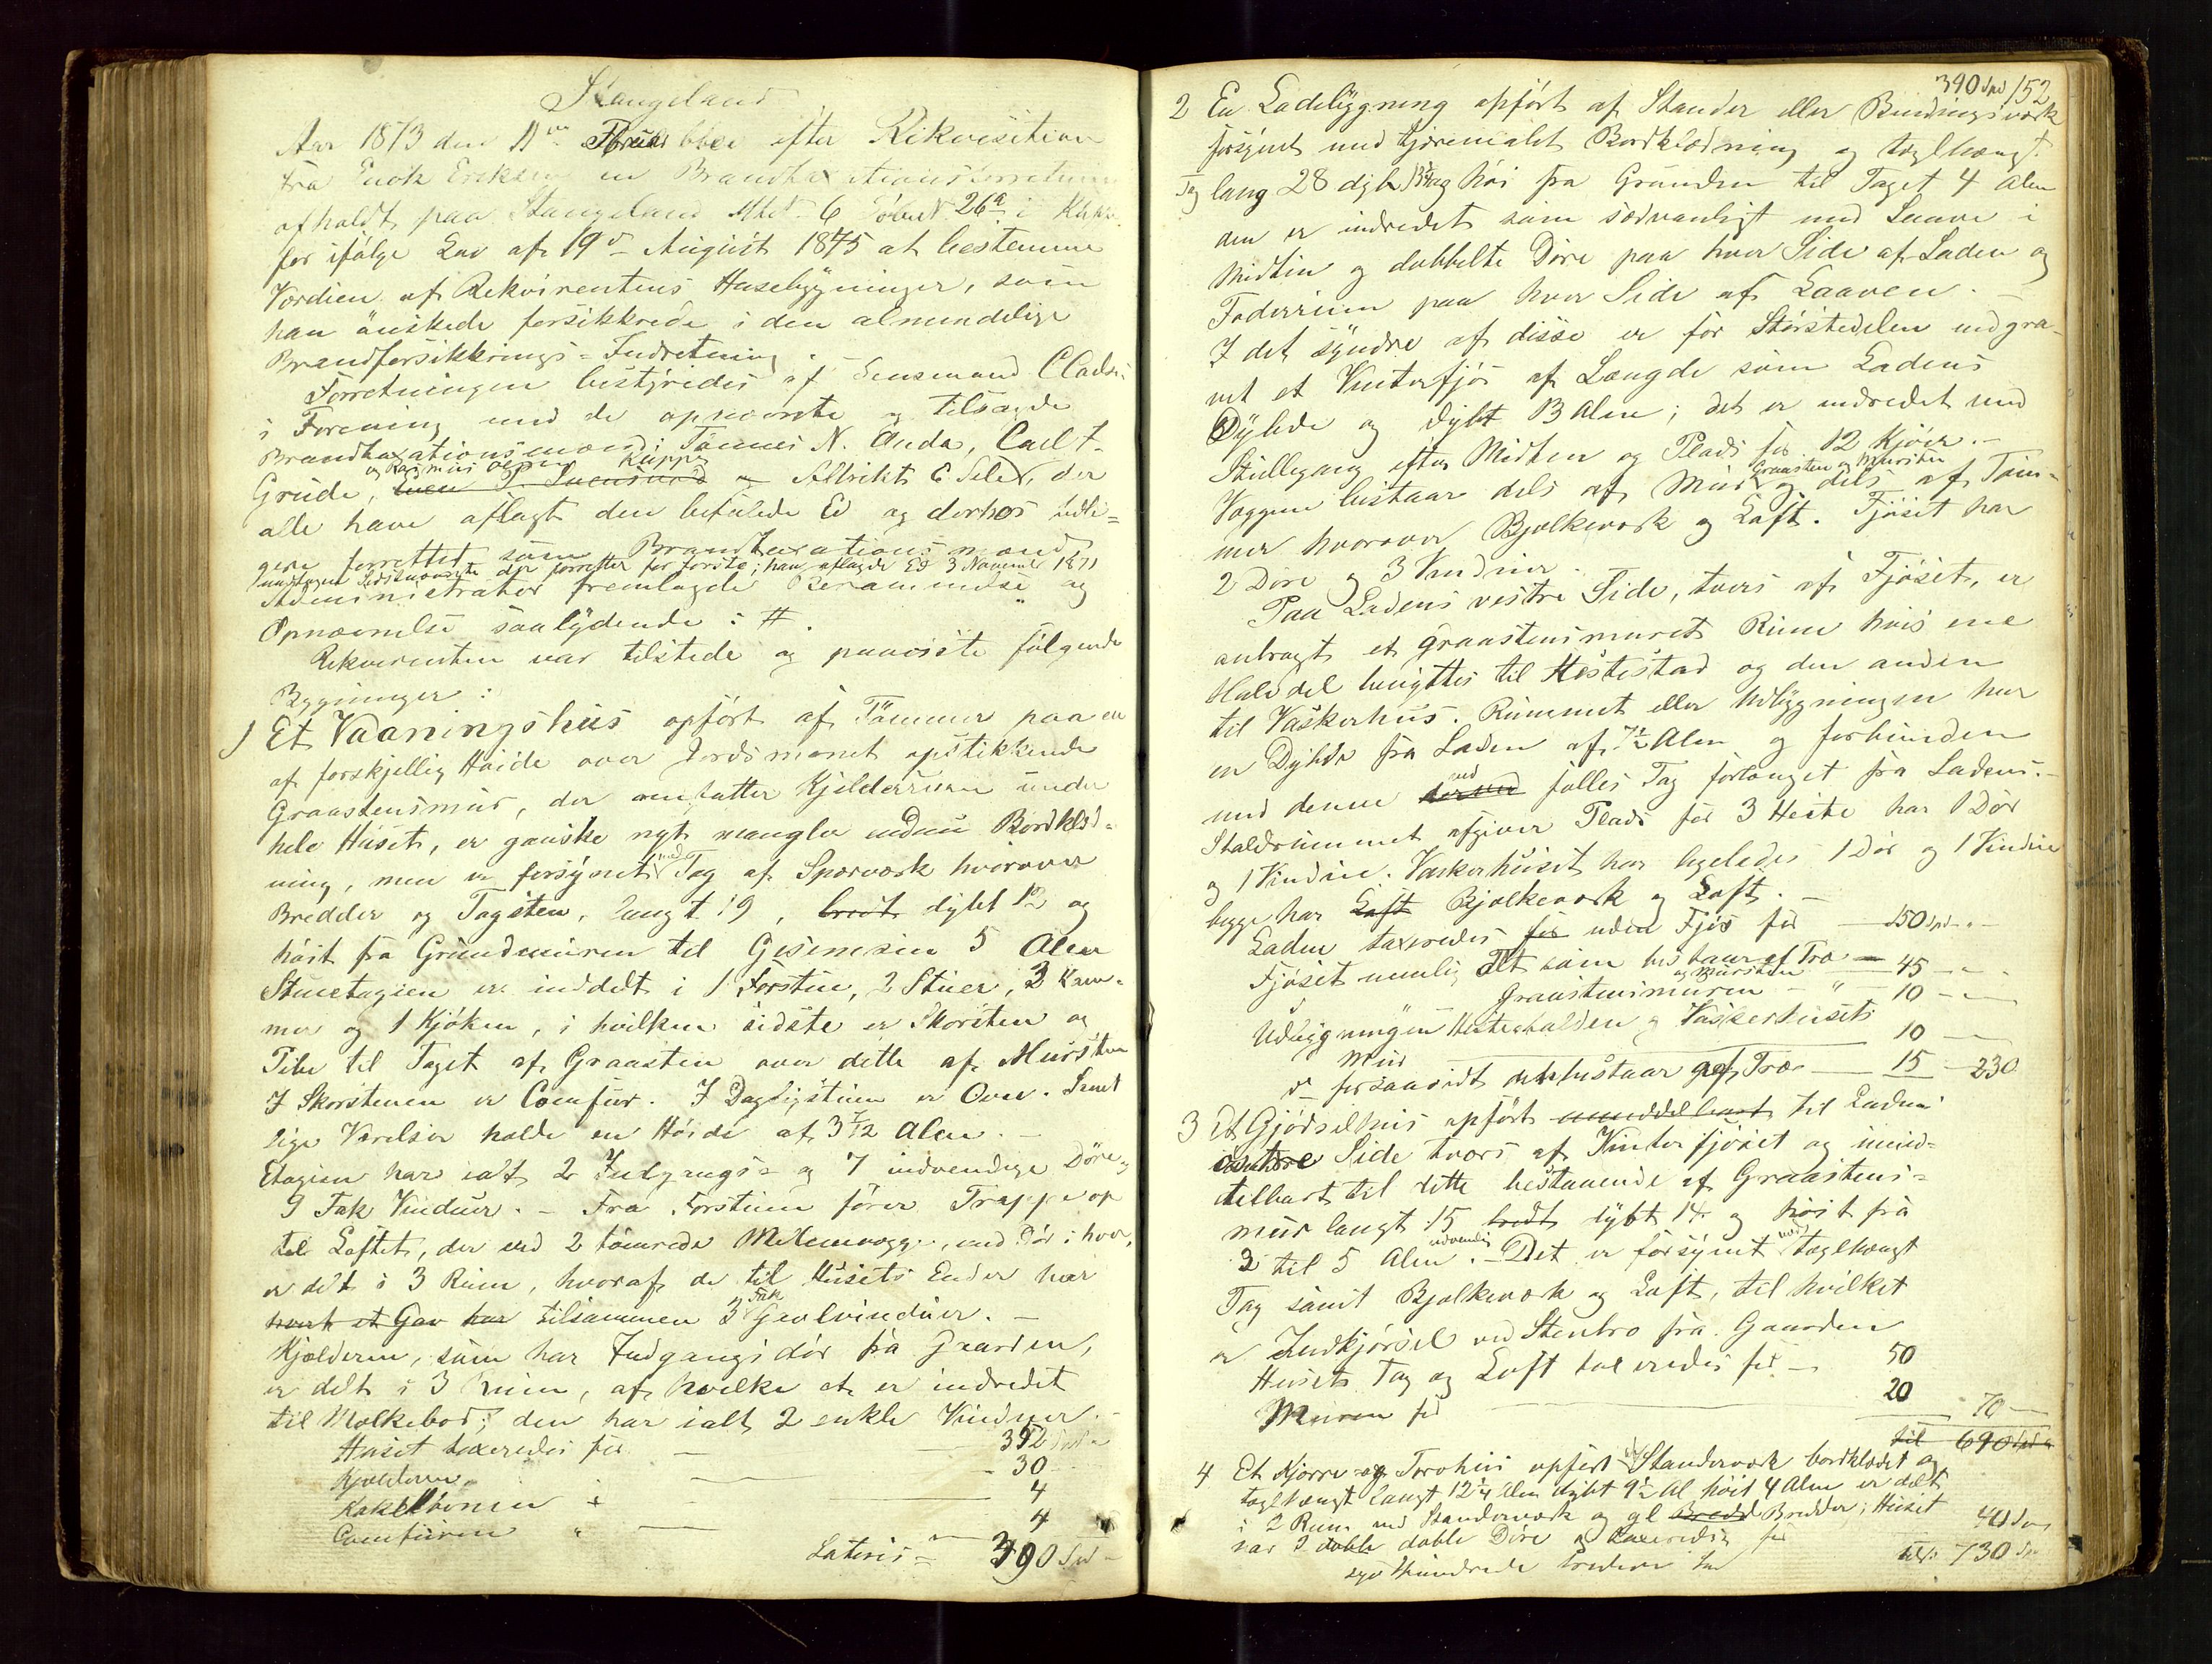 Stangeland
Aar 1873 den 11te efter Rekvisition
fra Enok Eriksen en Brandtaxationsforretning
afholdt paa Stangeland Mtrl. 6 Löbnr 26a i
for ifølge Lov af 19de August 1845 at bestemme
Værdien af Rekvirentens Husebygninger, som
han önskede forsikkrede i den almindelige
Brandforsikkrings-Indretning.
Forretningen bestyredes af Lensmand
i Forening med de opnævnte og tilsagte
Brandtaxationsmænd: Tønnes N. Auda, Carl T.
og Rasmus Olsen Kleppe
Grude, Albrikt E Sele, der
alle have aflagt den befalede Ed og derhos tidli-
gere forrettet som Brandtaxationsmænd
undtagen Sidstnævnte der forretter for første; han aflagde Ed 3 November 1871
Administrator fremlagde Berammelse og
Opnævnelse saalydende: #.
Rekvirenten var tilstede og paaviste følgende
Bygninger:
1 Et Vaaningshus opfört af Tömmer paa en
af forskjellig Höide over Jordsmonet opstikkende
Graastensmur, der omfatter Kjelderrum under
hele Huset, er ganske nyt mangler endnu Bordklæd-
ning, men er forsynet med Tag af Sparværk hvorover
Bredder og Tagsten, langt 19, bredt dybt 12 og
höit fra Grundmuren til Gesemsen 5 Alen
Stueetagien er inddelt i 1 Forstue, 2 Stuer, 3 Kam-
mer og 1 Kjöken, i hvilken sidste er Skorsten og
Pibe til Taget af Graasten over dette af Mursten
I Skorstenen er Comfur. I Dagligstuen er Oven. Samt
lige Værelser holde en Höide af 3 1/2 Alen. —
Etagien har ialt 2 Indgangs- og 7 indvendige Döre og
9 Fak Vinduer. — Fra Forstuen förer Trappe op
til Loftet, der ved 2 tömrede Mellemvægge, med Dör i hver,
er delt i 3 Rum, hvoraf de til Husets Ender har
hvert et Gav har tilsammen 3 Fak Gavlvinduer. —
Kjælderen, som har Indgangsdör fra Gaarden,
er delt i 3 Rum, af hvilke et er indredet
til Melkebod; den har ialt 2 enkle Vinduer. —
Huset taxeredes for — 352 Spd
Kjælderen — 30
Kakelovnen — 4
Comfuren — 4
Lateris = 390 Spd —
390 Spd 152
2 En Ladebygning opfört af Stander eller Bindingsværk
forsynet med tjæremalet Bordklædning og taglhængt
Tag lang 28 dyb 13 1/2 og höi fra Grunden til Taget 4 Alen
den er indredet som sædvanligt med Laave i
Midten og dobbelte Döre paa hver Side af Laden og
Foderrum paa hver Side af Laaven. —
I det syndre af disse er for Störstedelen indgra-
vet et Vinterfjös af Længde som Ladens
Dybde og dybt 13 Alen; det er indredet med
Stillegang efter Midten og Plads for 12 Kjöer. —
Væggene bestaar dels af Mur Graasten og Mursten og dels af Töm-
mer hvorover Bjælkeværk og Loft. Fjöset har
2 Döre og 3 Vinduer. —
Paa Ladens vestre Side, tvers af Fjöset, er
anbragt et graastensmuret Rum hvis ene
Halvdel benyttes til Hestestad og den anden
til Vaskerhus. Rummet eller Udbygningen har
en Dybde fra Laden af 7 1/2 Alen og forbunden
med denne ved fælles Tag forlænget fra Ladens. —
Staldrummet afgiver Plads for 3 Heste har 1 Dör
og 1 Vindue. Vaskerhuset har ligeledes 1 Dör og 1 Vindue
begge har Loft Bjælkeværk og Loft. —
Laden taxeredes for uden Fjös for — 150 Spd
Fjöset nemlig Alt som bestaar af Træ — 45
Graastensmuren og Mursten — 10
Udbygningen Hestestalden og Vaskerhusets
Mur — 10
do forsaavidt det bestaar af Træ — 15 — 230
3 Et Gjödselhus opfört umiddelbart til Ladens
östre Side tvers af Vinterfjöset og umid-
delbart til dette bestaaende af Graastens-
mur langt 15 bredt dybt 14 og höit fra
3 til 5 Alen udvendig. — Det er forsynet med taglhængt
Tag samt Bjælkeværk og Loft, til hvilket
er Indkjörsel ved Stenbro fra Gaarden
Husets Tag og Loft taxeredes for — 50
Muren for — 20 70 —
til 690 Spd
4 Et Kjørre og Torvhus opfört af Standerværk bordklædet og
taglhængt langt 12 1/4 Alen dybt 9 1/2 Al höit 4 Alen er delt
i 2 Rum ved Standerværk og gl Bredd Bredder; Huset
har 2 doble doble Döre og taxeredes for 40 Spd
tils. 730 Spd
syv Hundrede tredive Spd